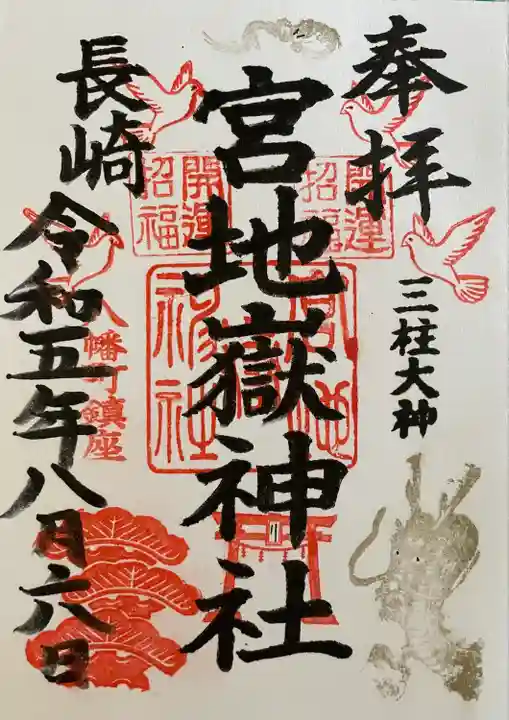 奉拝
三柱大神
宮地嶽神社
開運
招福
開運
招福
長崎
八幡町鎮座
令和五年八月六日